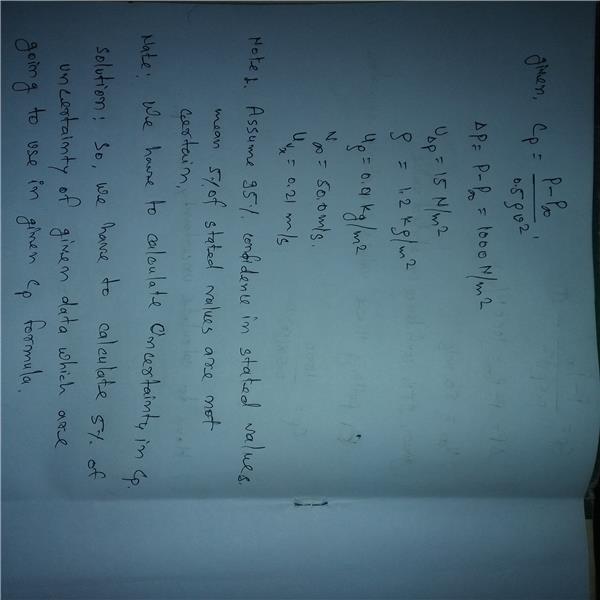 given, Cp = P-P∞ / 0.5ρv²,
ΔP = P-P∞ = 1000 N/m²
UΔp = 15 N/m²
ρ = 1.2 kg/m²
Uρ = 0.01 kg/m²
V∞ = 50.0 m/s.
Uvx = 0.21 m/s
Note 1. Assume 95% confidence in stated values.
mean 5% of stated values are not
certain.
Note: We have to calculate Uncertainty in Cp.
Solution: So, we have to calculate 5% of
uncertainty of given data which are
going to use in given Cp formula.